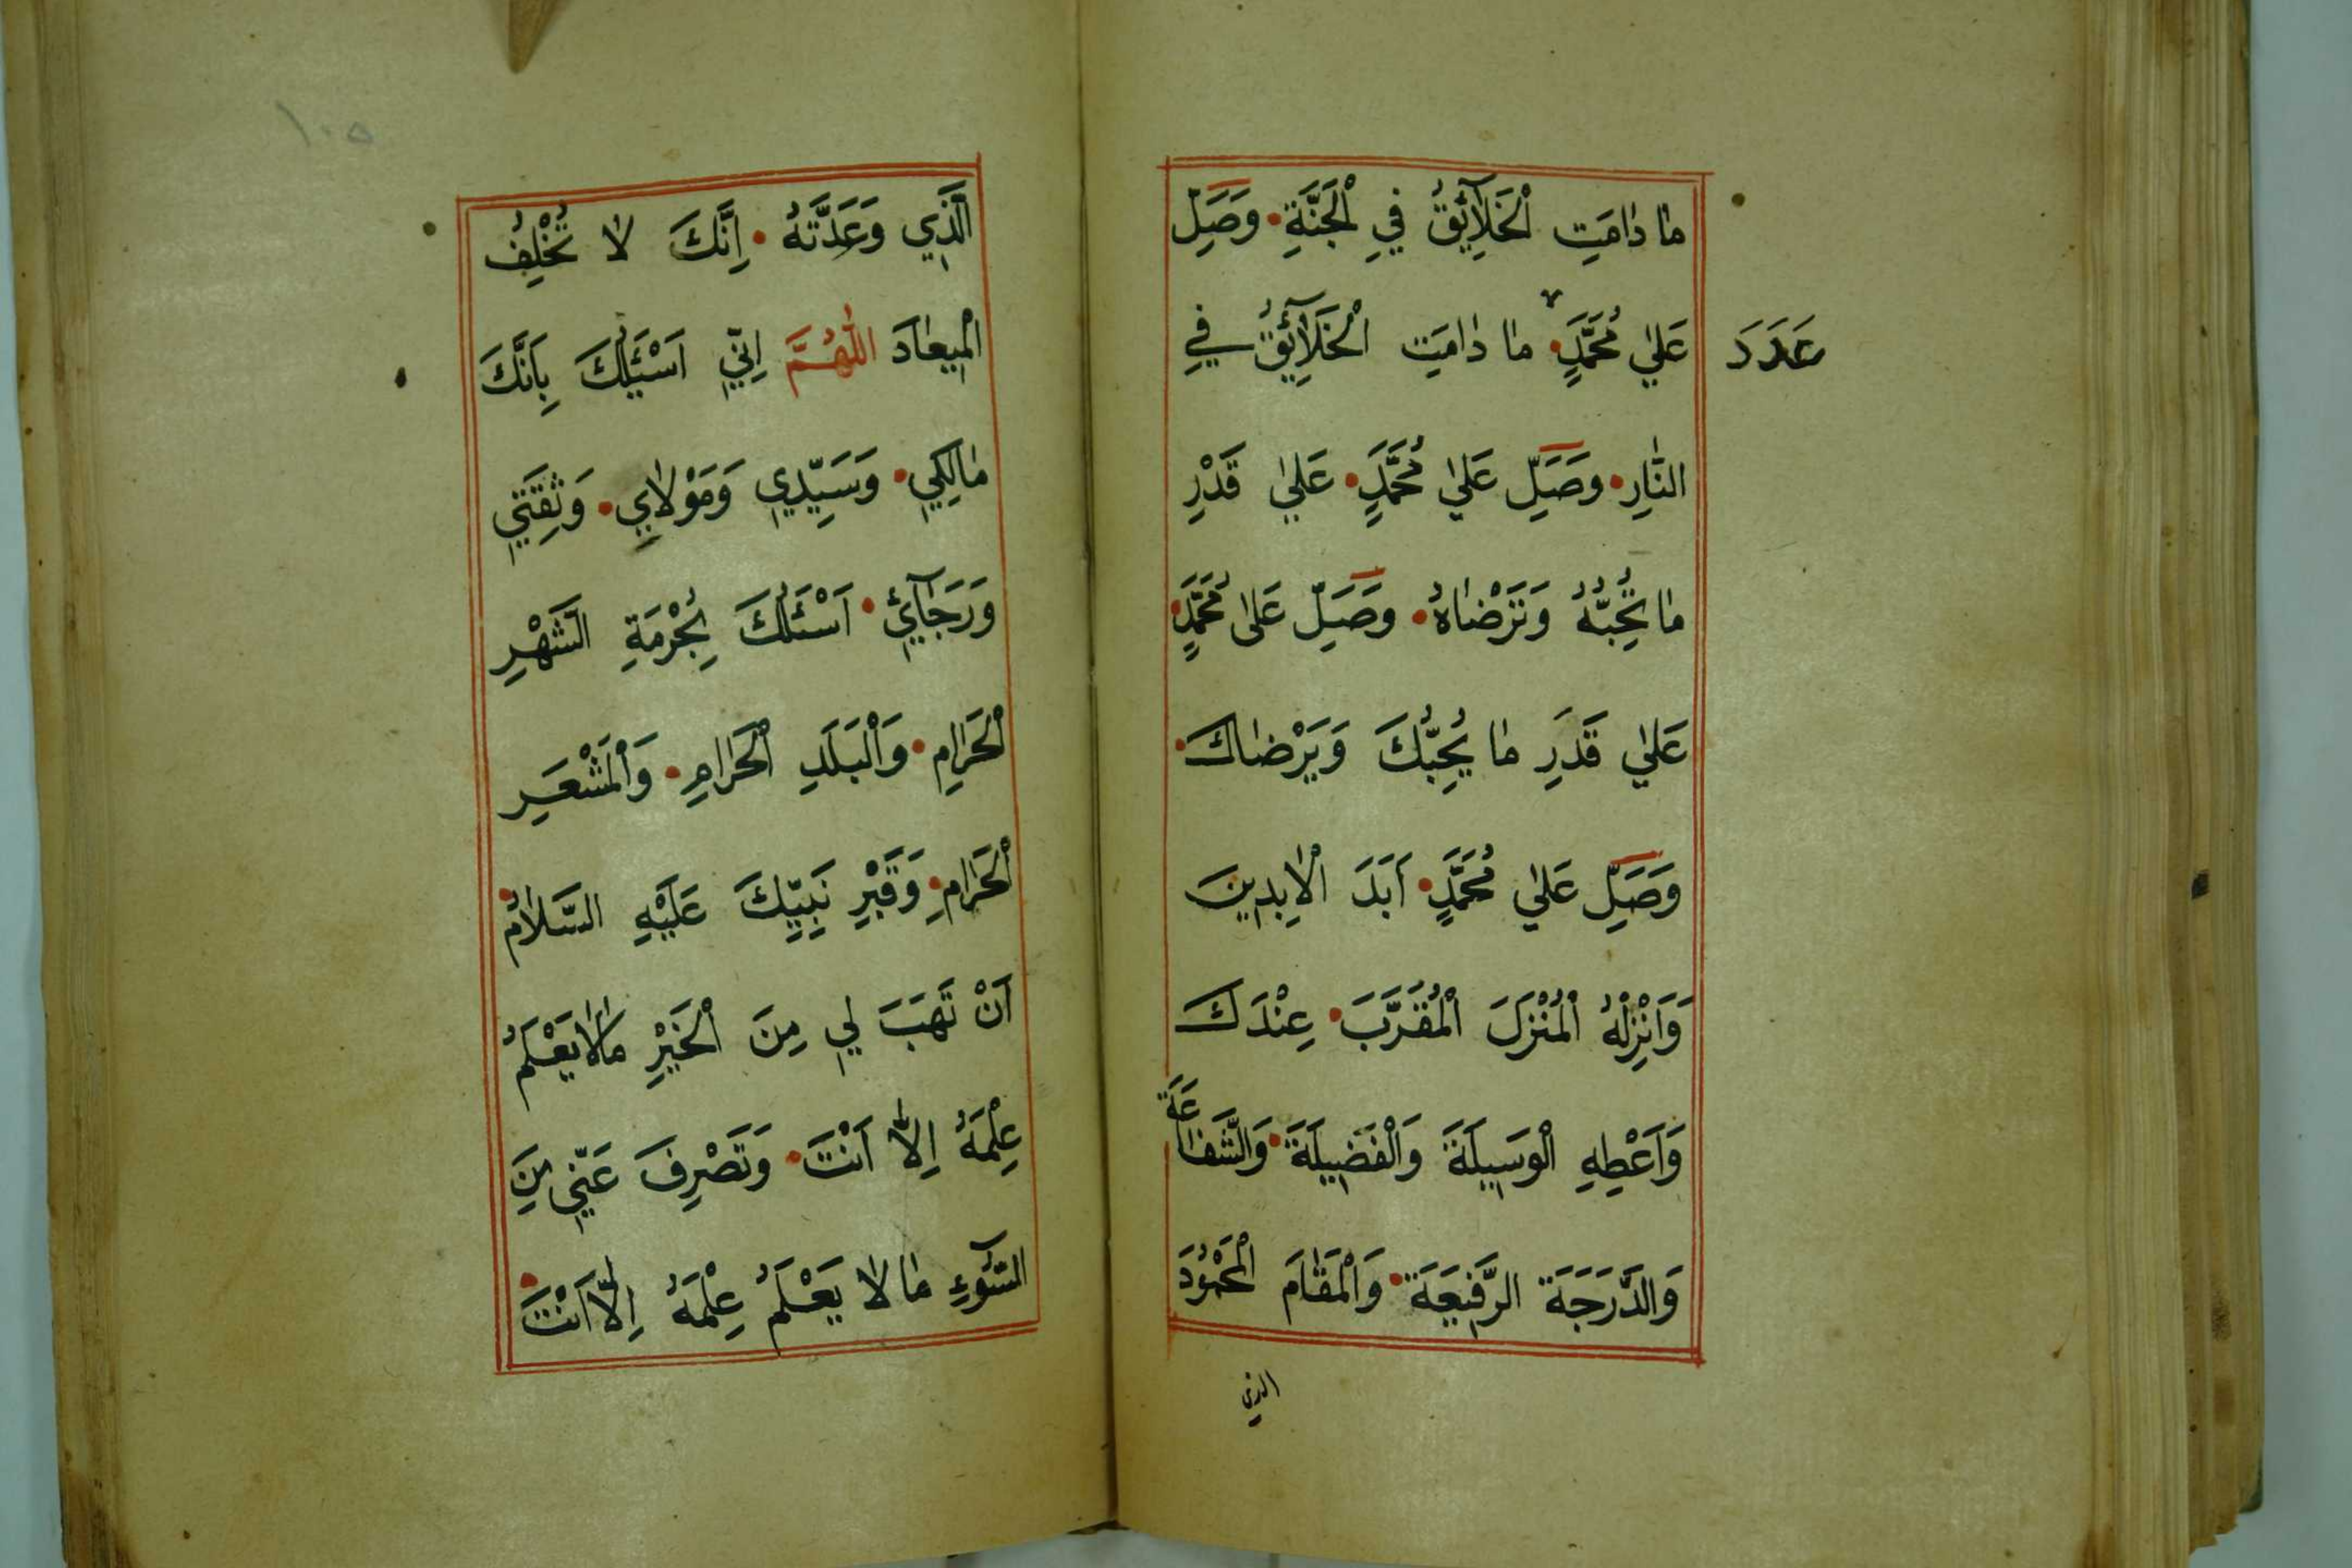 مٰا دٰامَتِ الْخَلٰآئِقُ فِي الْجَنَّةِ وَصَلِّ
عَلٰي مُحَمَّدٍ مٰا دٰامَتِ الْخَلٰآئِقُ فِي
عَدَدَ
النّٰارِ وَصَلِّ عَلٰي مُحَمَّدٍ عَلٰي قَدْرِ
مٰا تُحِبُّهُ وَتَرْضٰاهُ وَصَلِّ عَلٰى مُحَمَّدٍ
عَلٰي قَدَرِ مٰا يُحِبُّكَ وَيَرْضٰاكَ
وَصَلِّ عَلٰي مُحَمَّدٍ اَبَدَ الْاٰبِدِينَ
وَاَنْزِلْهُ الْمُنْزَلَ الْمُقَرَّبَ عِنْدَكَ
وَاَعْطِهِ الْوَسِيلَةَ وَالْفَضِيلَةَ وَالشَّفٰاعَةَ
وَالدَّرَجَةَ الرَّفِيعَةَ وَالْمَقٰامَ الْمَحْمُودَ
الذي
١٠٥
الَّذِي وَعَدَّتَهُ اِنَّكَ لٰا تُخْلِفُ
الْمِيعٰادَ اللّٰهُمَّ اِنِّي اَسْئَلُكَ بِاَنَّكَ
مٰالِكِي وَسَيِّدِي وَمَوْلٰايِ وَثِقَتِي
وَرَجٰآئِي اَسْئَلُكَ بِحُرْمَةِ الشَّهْرِ
الْحَرٰامِ وَالْبَلَدِ الْحَرٰامِ وَالْمَشْعَرِ
الْحَرٰامِ وَقَبْرِ نَبِيِّكَ عَلَيْهِ السَّلٰامُ
اَنْ تَهَبَ لِي مِنَ الْخَيْرِ مٰالٰا يَعْلَمُ
عِلْمَهُ اِلّٰا اَنْتَ وَتَصْرِفَ عَنِّي مِنَ
السُّوٓءِ مٰا لٰا يَعْلَمُ عِلْمَهُ اِلّٰا اَنْتَ